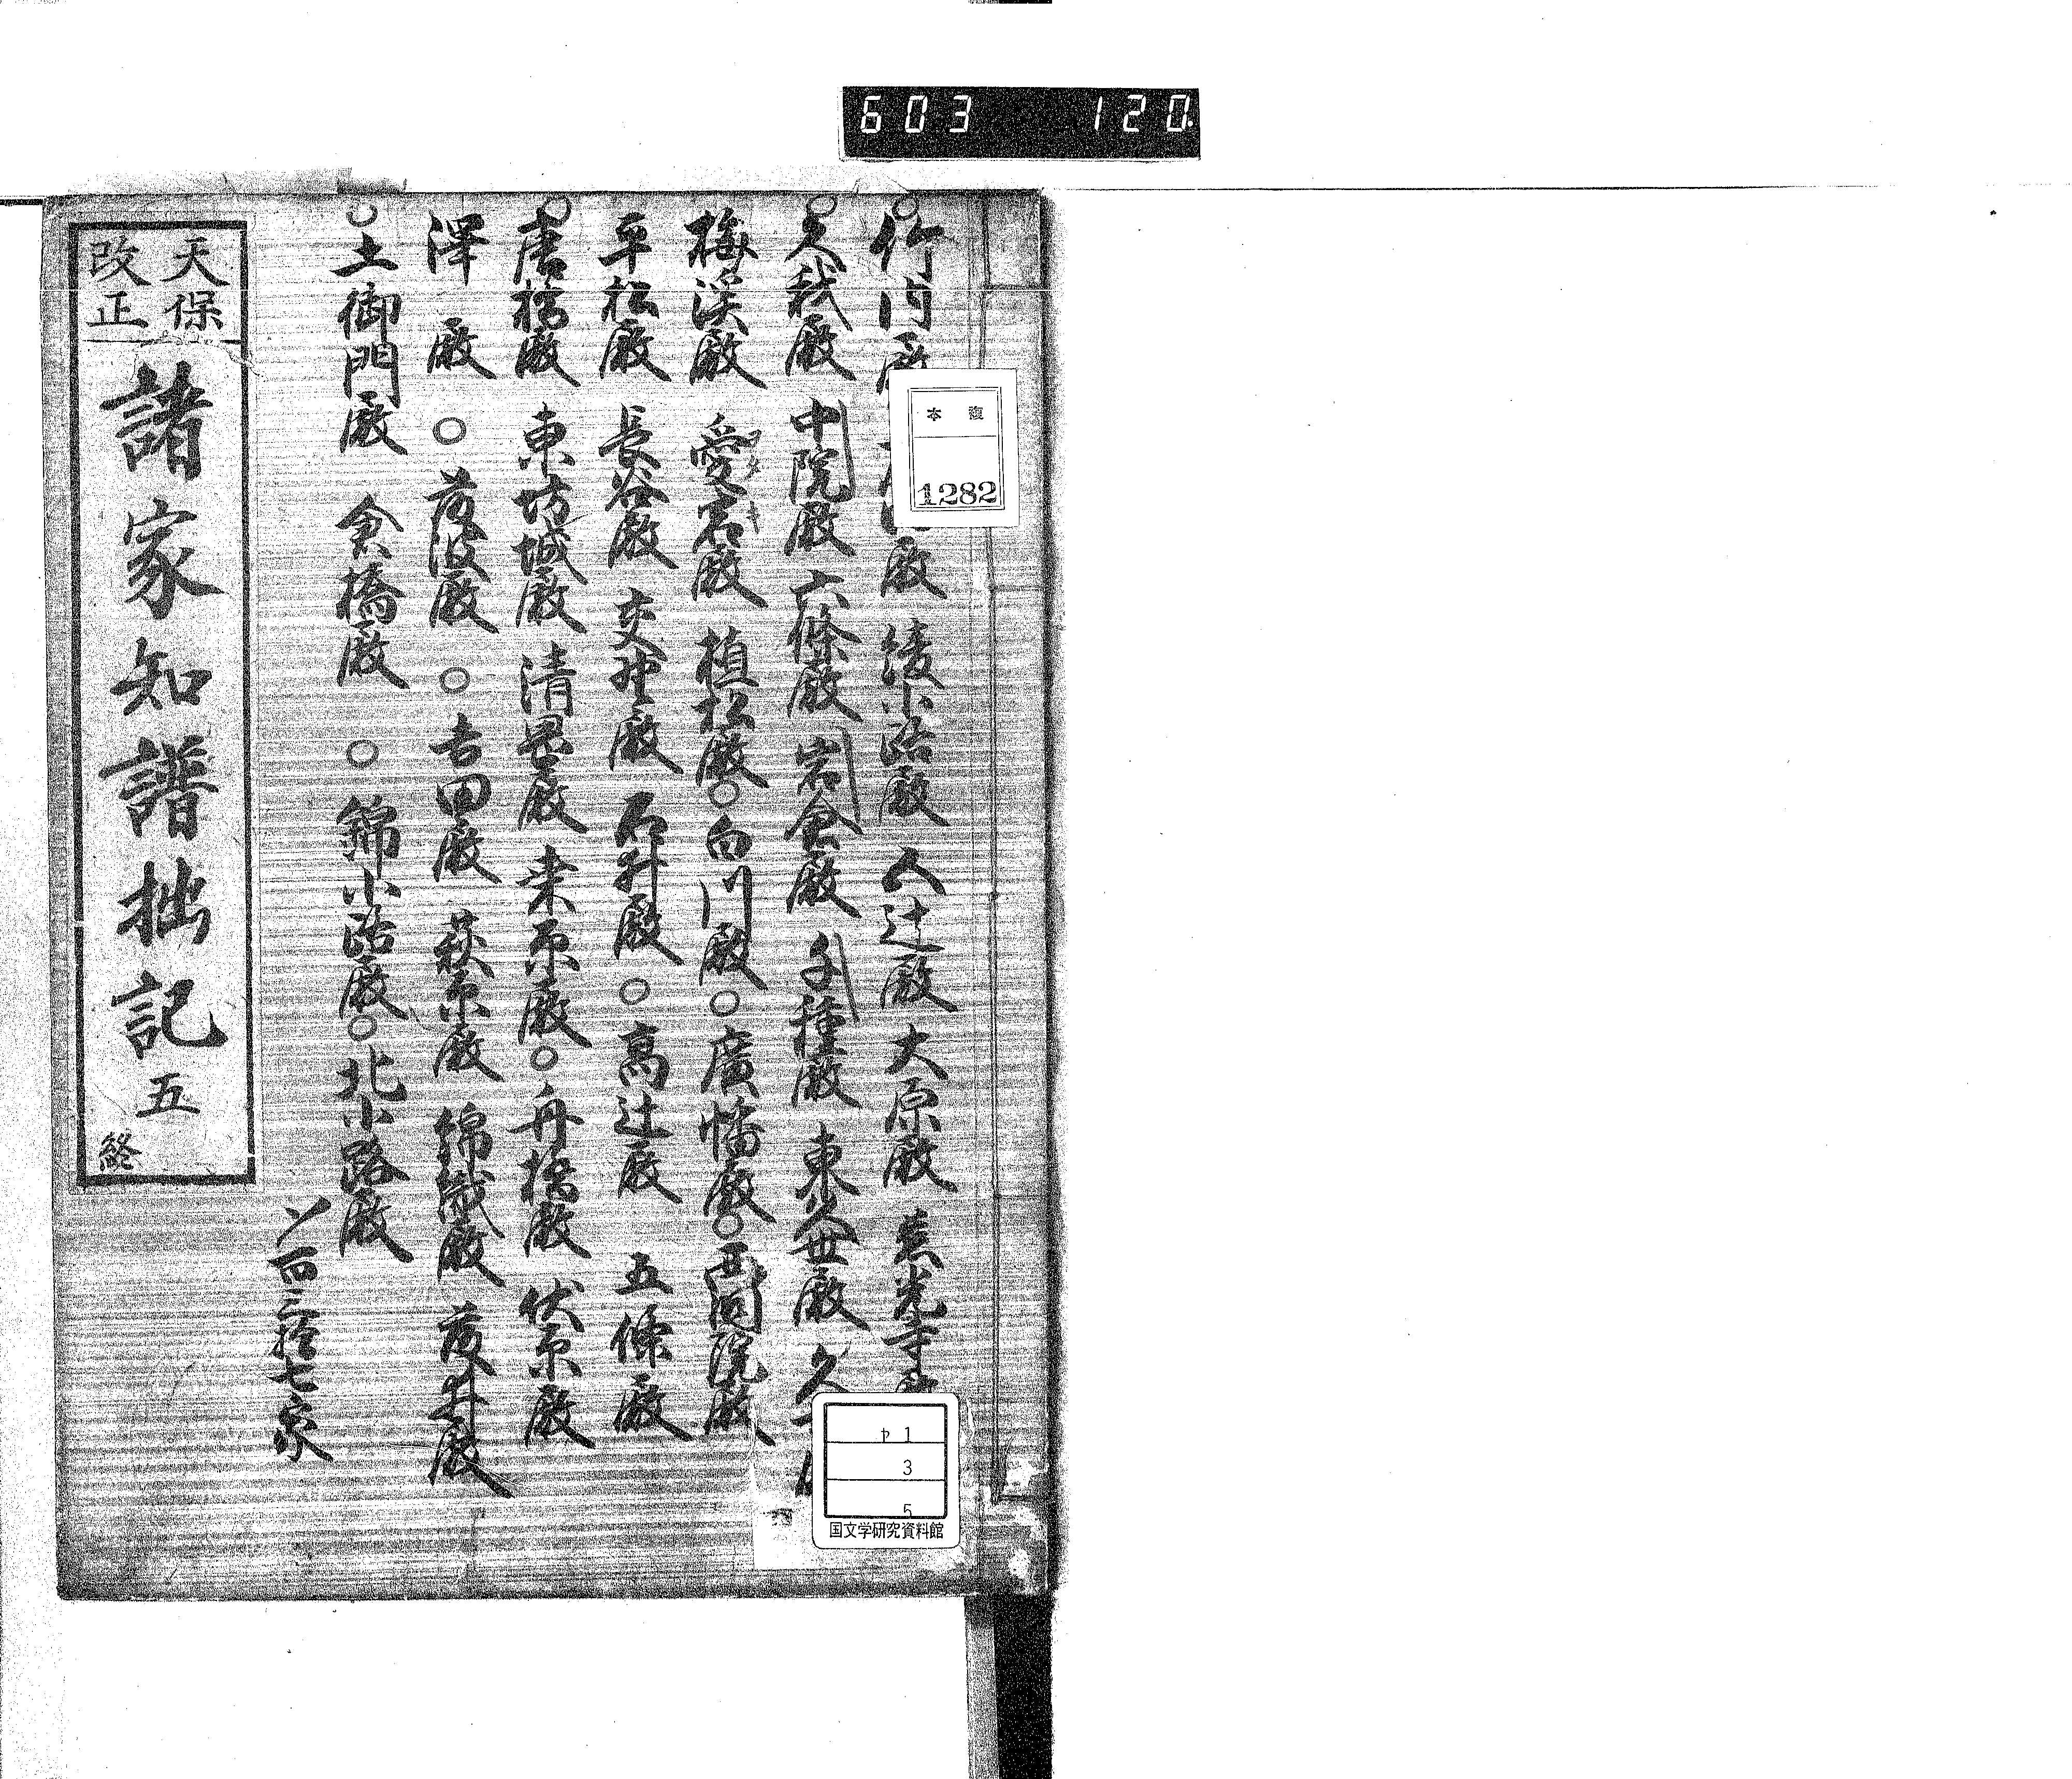 603 120
○竹内殿 殿 綾小路殿 五辻殿 大原殿 慈光寺
○久我殿 中院殿 六條殿 岩倉殿 千種殿 東久世殿 久
梅溪殿 愛宕殿 植松殿 ○白川殿 ○廣幡殿 ○西洞院殿
ヲタキ
平松殿 長谷殿 交野殿 石井殿 ○高辻殿 五條殿
○唐橋殿 東坊城殿 清岡殿 桑原殿 ○舟橋殿 伏原殿
澤殿 ○藤波殿 ○吉田殿 萩原殿 錦織殿 藤井殿
○土御門殿 倉橋殿 ○錦小路殿 ○北小路殿
〆百三拾七家
天保
改正
諸家知譜拙記 五
終
複本
1282
ヤ1
3
5
国文学研究資料館